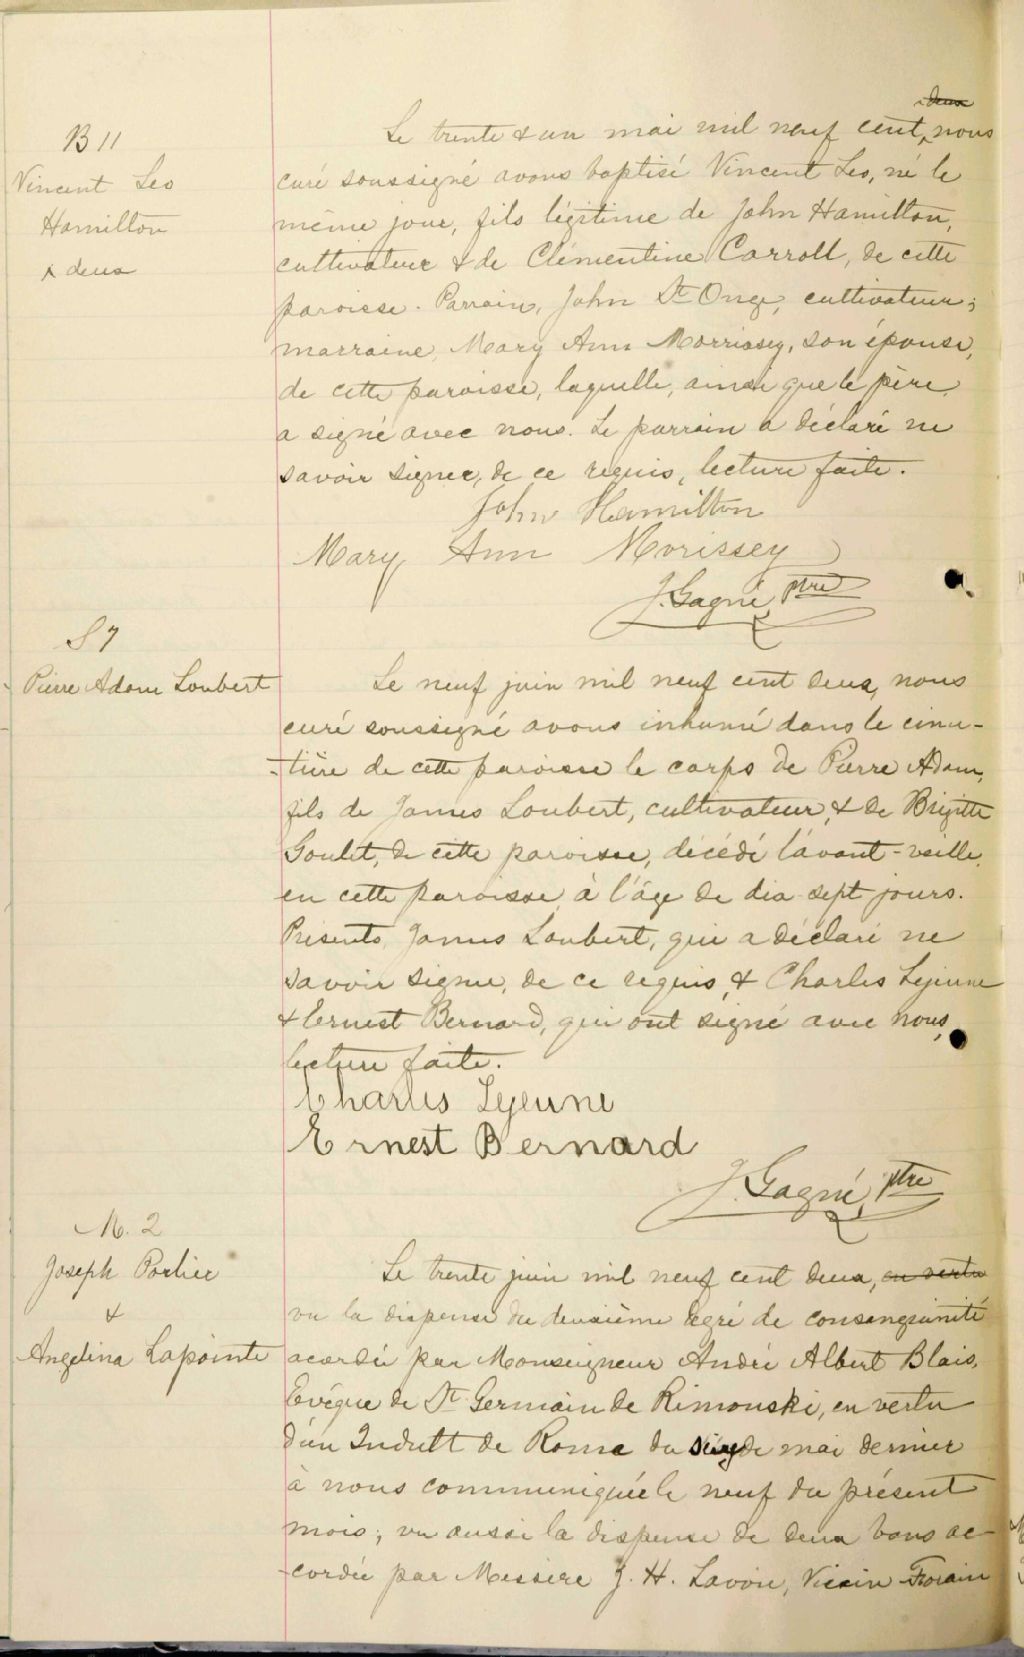 B 11
Vincent Leo
Hamilton
x deux
deux
Le trente & un mai mil neuf cent, nous
curé soussigné avons baptisé Vincent Leo, né le
même jour, fils légitime de John Hamilton,
cultivateur & de Clémentine Carroll, de cette
paroisse. Parrain, John St Onge, cultivateur;
marraine, Mary Ann Morrissey, son épouse,
de cette paroisse, laquelle, ainsi que le père,
a signé avec nous. Le parrain a déclaré ne
savoir signer, de ce requis, lecture faite.
John Hamilton
Mary Ann Morissey
J. Gagné, ptre
S 7
Pierre Adam Loubert
Le neuf juin mil neuf cent deux, nous
curé soussigné avons inhumé dans le cime-
-tière de cette paroisse le corps de Pierre Adam,
fils de James Loubert, cultivateur, & de Brigitte
Goulet, de cette paroisse, décédé l'avant-veille,
en cette paroisse, à l'âge de dix-sept jours.
Présents, James Loubert, qui a déclaré ne
savoir signer, de ce requis, & Charles Lejeune
& Ernest Bernard, qui ont signé avec nous,
lecture faite.
Charles Lejeune
Ernest Bernard
J. Gagné, ptre
M. 2
Joseph Porlier
&
Angelina Lapointe
Le trente juin mil neuf cent deux, en vertu
vu la dispense du deuxième degré de consanguinité
acordée par Monseigneur André Albert Blais,
Evêque de St Germain de Rimouski, en vertu
d'un Indult de Rome du mai dernier
à nous communiquée le neuf du présent
mois; vu aussi la dispense de deux bans ac-
-cordée par Messire J. H. Lavoie, Vicaire Forain